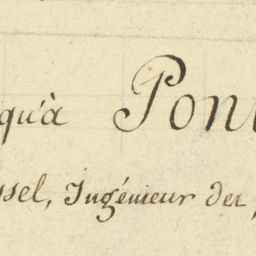 qu'à Pon
ssel, Ingénieur des